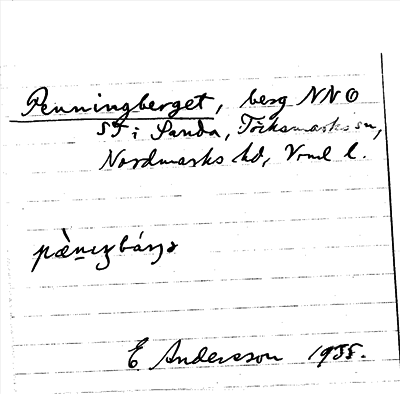 Penningberget, berg NNO
ST i Sanda, Töcksmarks sn,
Nordmarks hd, Vrml l.
E Andersson 1938.